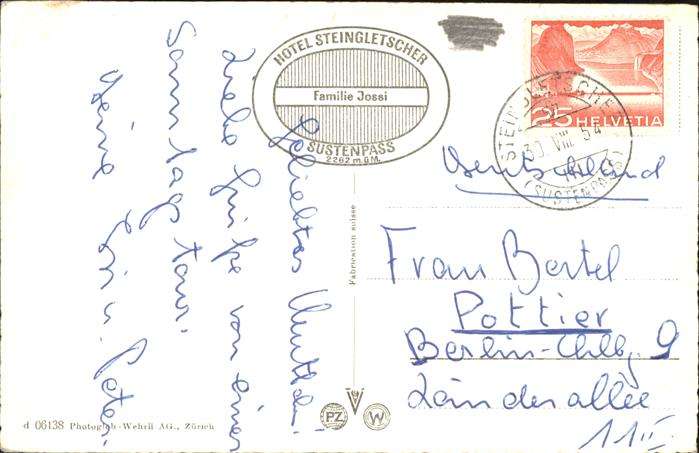 HOTEL STEINGLETSCHER
Familie Jossi
SUSTENPASS
2262 m.ü.M.
25 HELVETIA
STEINGLETSCHER
30. VIII. 54
(SUSTENPASS)
Geliebtes
Liebe Grüße von einer
Sonntagstour.
Deine
Deutschland
Frau Bertel
Pottier
Berlin-Chlbg. 9
Länderallee
11 II
Fabrication suisse
PZ
W
d 06138 Photoglob-Wehrli AG., Zürich